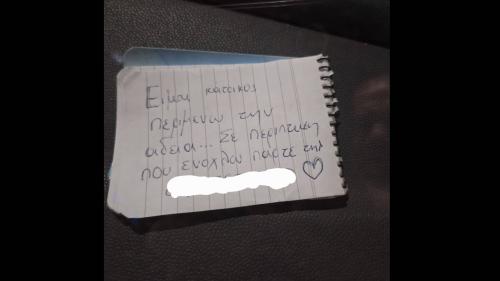 Είμαι κάτοικος
περιμενω την
αδεια... Σε περιπτωση
που ενοχλω παρτε τηλ